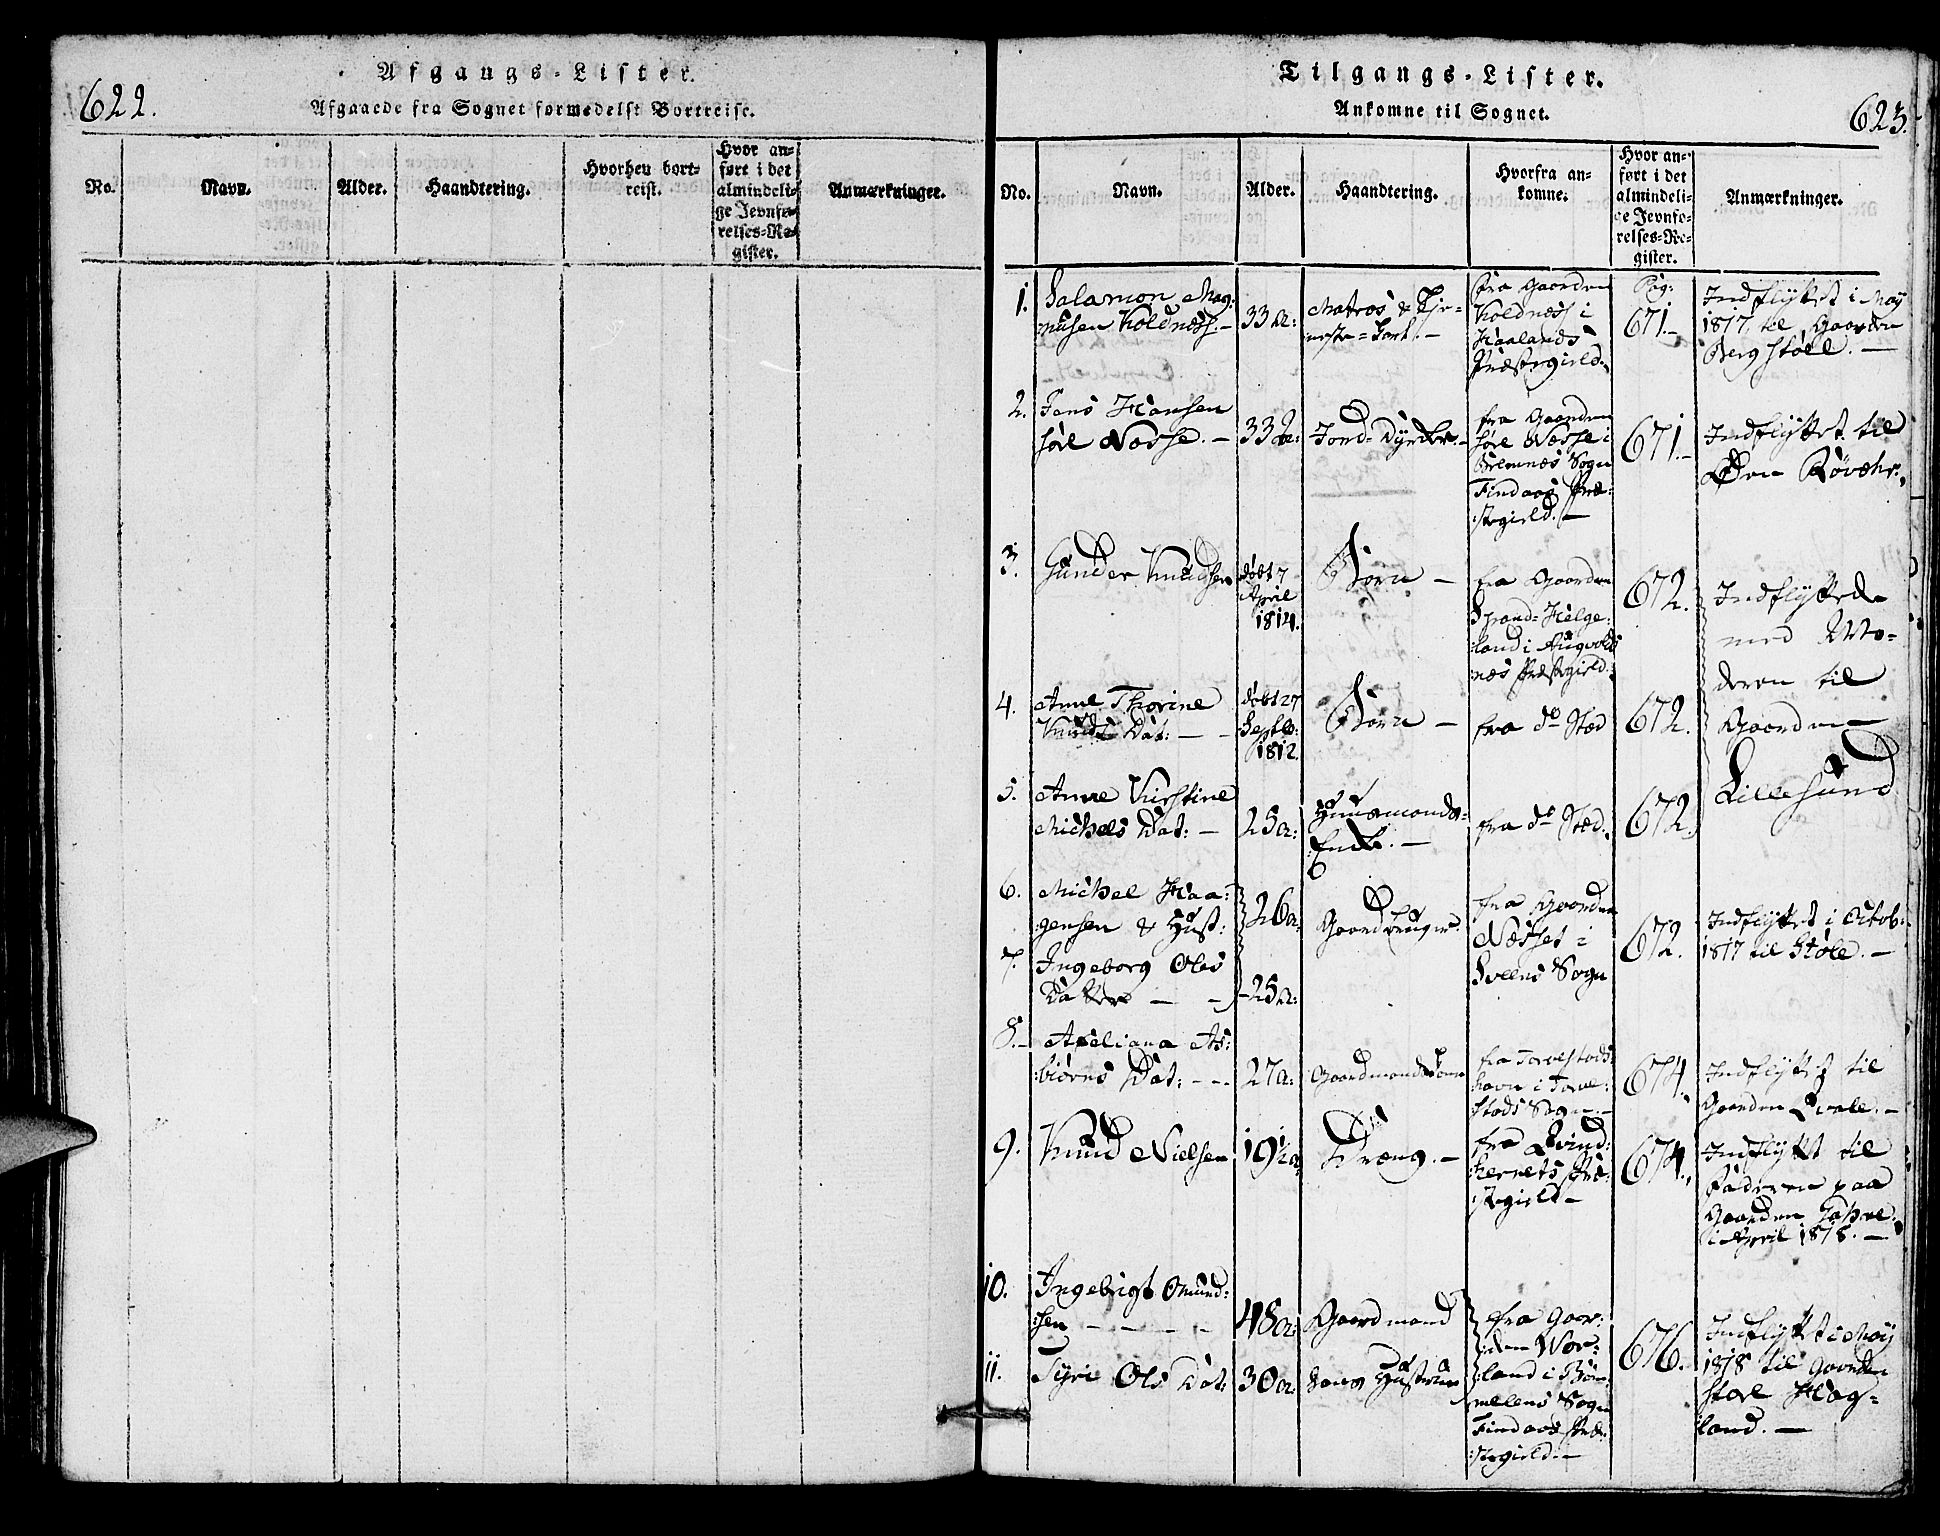 622.
Afgangs-Lister.
Afgaaede fra Sognet formedelst Bortreise.
No.
Navn.
Alder.
Haandtering.
Hvorhen bort-
reist.
Hvor an-
ført i det
almindeli-
ge Jevnfø-
relses-Re-
gister.
Anmærkninger.
Tilgangs-Lister.
Ankomne til Sognet.
623.
No.
Navn.
Alder.
Haandtering.
Hvorfra an-
komne.
Hvor an-
ført i det
almindeli-
ge Jevnfø-
relses-Re-
gister.
Anmærkninger.
1.
Salamon Mag-
nusen Koldnæss.-
33 a:
Matros & Tje-
neste-Karl.-
fra Gaarden
Koldnæss i
Præstegield.
Pag:
671.-
Indflyttet i May
1817. til Gaarden
Bergstøll.-
2.
Jens Hansen
søre Næsse.-
33 a:
Jord-Dyrker.-
fra Gaarden
søre Næsse i
Bremnæs Sogn
Findaas Præ:
:stegield.-
671.-
Indflyttet til
Øen Røvær.
3.
Gunder Knudsen
døbt 7
April
1814.
Barn-
fra Gaarden
Strand-Helge:
:land i Augvolds
næs Præstegield.
672.
Indflyttede
med Mo-
deren til
Gaarden
Lillesund
4.
Anne Thorine
Knuds Dat:-
døbt 27
Septb:
1812.
Barn-
fra do Stæd
672.
5.
Anne Kirstine
Michels Dat:-
25 a:
Huusmands-
Enke.-
fra do Stæd.
672.
6.
Michel Haa:
gensen & Hust:
26 a:
Gaardbruger.
fra Gaarden
Næsset i
Sveens Sogn
672.
Indflyttet i Octob:
1817 til Støle.-
7.
Ingeborg Ols
Datter -
25 a:
8.-
Axeliana As:
:biørns Dat:-
27 a:
fra Torvestads
havn i Torve:
stads Sogn.-
674.
Indflyttet til
Gaarden Qvale.-
9.
Knud Nielsen
19½ a
Dreng.-
fra Qvind:
herrets Præ:
:stegield-
674.
Indflyttet til
Faderen paa
Gaarden
i April 1818.-
10.
Ingebrigt Omund:
:sen - - -
48 a:
Gaardmand
fra Gaar:
:den Vor:
:land i Bøm
melens Sogn
Findaas Præ:
:stegield.-
676.
Indflyttet i May
1818 til Gaarden
store Hag-
land.-
11.
Syri Ols Dat:
30 a:
hans Hustrue